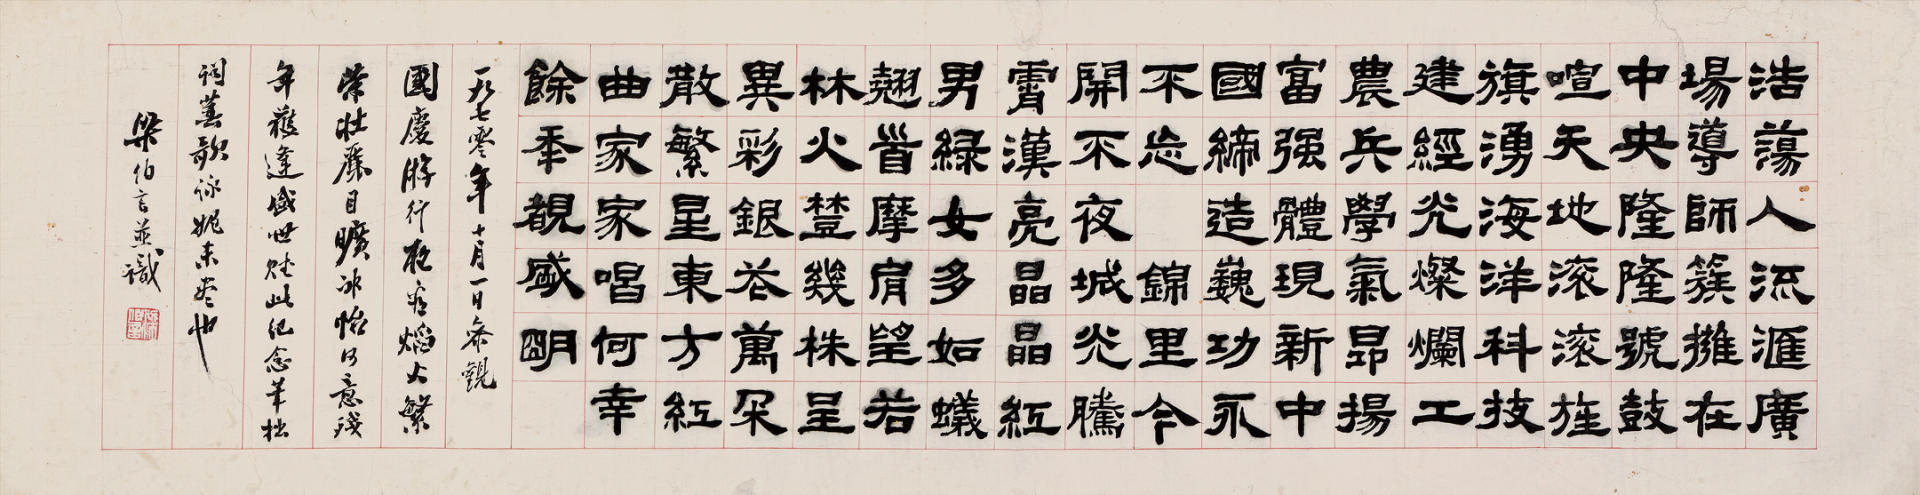 浩蕩人流滙廣
場導師簇擁在
中央隆隆號鼓
喧天地滚滚旌
旗湧海洋科技
建經光燦爛工
農兵學氣昂揚
富强體現新中
國締造巍功永
不忘 錦里今
開不夜城光騰
霄漢亮晶晶紅
男緑女多如蟻
翹首摩肩望若
林火幾株呈
異彩銀花萬朵
散繁星東方紅
曲家家唱何幸
餘年覩盛明
一九七零年十月一日參觀
國慶游行夜看熖火繁
榮壯麗目曠神怡何意殘
年獲逢盛世賦此紀念筆拙
詞蕪歌詠媿未盡也
梁伯言並識